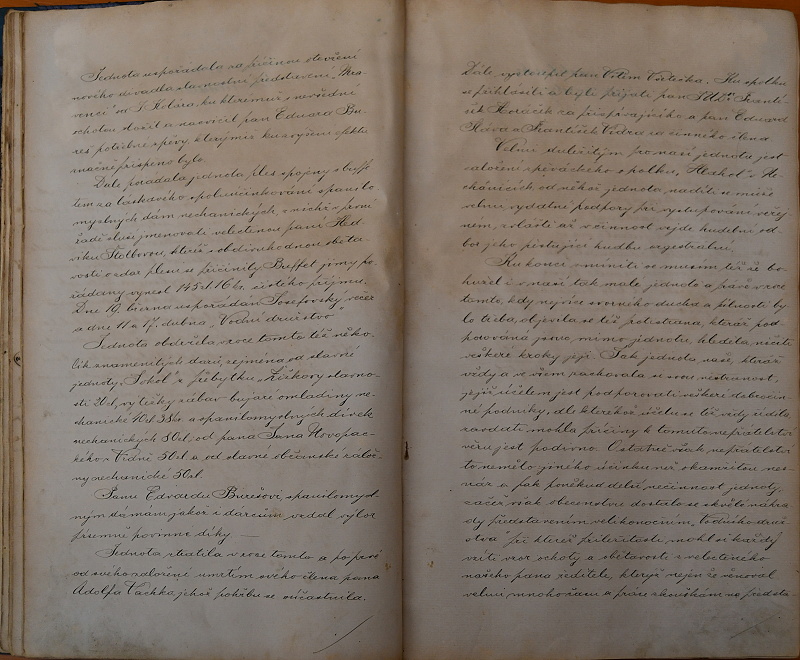 Jednota uspořádala za příčinou otevření
nového divadla slavnostní představení „Mra-
venci“ od J. Kolára, ku kterémuž nevšední
ochotou složil a nacvičil pan Eduard Bu-
reš potřebné zpěvy, kterýmiž ku zvýšení efektu
značně přispěno bylo.
Dále pořádala jednota ples spojený s buffe-
tem za laskavého spoluúčinkování spanilo-
myslných dám nechanických, z nichž v první
řadě sluší jmenovati velectěnou paní Hed-
viku Kolbovou, kteréž s obdivuhodnou oběta-
vostí o zdar plesu se přičinily. Buffet jimy po-
řádaný vynesl 145 zl 16 kr. čistého příjmu.
Dne 19. března uspořádán Josefovský večer
a dne 11 a 17. dubna „Vodní družstvo“
Jednota obdržela v roce tomto též něko-
lik znamenitých darů, zejména od slavné
jednoty „Sokol“ z přebytku Žižkovy slavno-
sti 20 zl, výtěžky zábav bujaré omladiny ne-
chanické 40 zl 38 kr. a spanilomyslných dívek
nechanických 80 zl, od pana Jana Novopac-
kého z Vídně 50 zl a od slavné občanské zálož-
ny nechanické 50 zl.
Panu Edvardu Burešovi, spanilomysl-
ným dámám jakož i dárcům, vzdal výbor
písemně povinné díky. —
Jednota ztratila v roce tomto a po prvé
od svého založení úmrtím svého člena pana
Adolfa Vachka, jehož pohřbu se súčastnila.
Dále vystoupil pan Vilém Vštečka. Ku spolku
se přihlásili a byli přijati pan JUDr. Franti-
šek Horáček za přispívajícího a pan Eduard
Sláva a František Vodra za činného člena.
Velmi důležitým pro naši jednotu jest
založení zpěváckého spolku „Hlahol“ v Ne-
chanicích od něhož jednota nadíti se může
velmi vydatné podpory při vystupování veřej-
ném, zvláště až v činnost vejde hudební od-
bor jeho pěstující hudbu orgestrální.
Ku konci zmíniti se musím též že bo-
hužel i v naší tak malé jednotě a právě v roce
tomto, kdy nejvíce svorného ducha a pilnosti by-
lo třeba, objevila se též protistrana, kteráž pod-
porována jsouc mimo jednotu, hleděla ničiti
veškeré kroky její. Jak jednota naše, kteráž
vždy a ve všem zachovala se svou nestrannost,
jejíž účelem jest podporovati veškeré dobročin-
né podniky, dle kteréhož účelu se též vždy řídila,
zavdati mohla příčiny k tomuto nepřátelství
věru jest podivno. Ostatně však nepřátelství
to nemělo jiného účinku než okamžitou nes-
náz a pak poněkud delší nečinnost jednoty,
začež však obecenstvu dostalo se skvělé náhra-
dy představením velikonočním, „Vodního druž-
stva“ při kteréž příležitosti mohl si každý
vzíti vzor ochoty a obětavosti z velectěného
našeho pana ředitele, kterýž nejen že věnoval
velmi mnoho času a práce zkouškám na předsta-